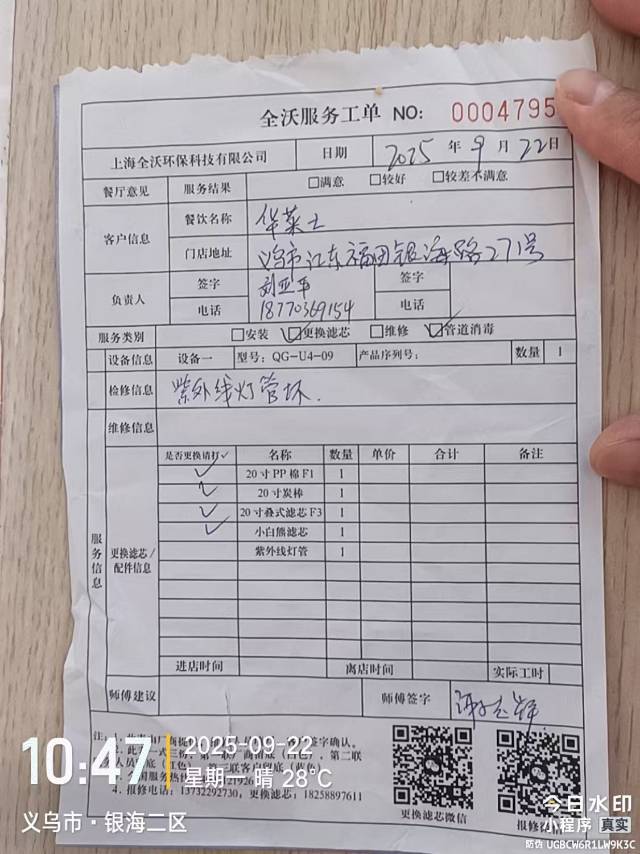 全沃服务工单 NO: 0004795
上海全沃环保科技有限公司 日期 2025 年 9 月 22 日
餐厅意见 服务结果 □满意 □较好 □较差不满意
客户信息 餐饮名称 华莱士
门店地址 义乌市江东福田银海路271号
负责人 签字 刘亚平 签字
电话 18770369154 电话
服务类别 □安装 ☑更换滤芯 □维修 ☑管道消毒
设备信息 设备一 型号: QG-U4-09 产品序列号: 数量 1
检修信息 紫外线灯管坏.
维修信息
是否更换请打✓ 名称 数量 单价 合计 备注
✓ 20寸PP棉F1 1
✓ 20寸炭棒 1
✓ 20寸叠式滤芯F3 1
✓ 小白熊滤芯 1
紫外线灯管 1
服务信息
更换滤芯/配件信息
进店时间 离店时间 实际工时
师傅建议 师傅签字
注: 1.
签字确认。
2. 此 一式三份, 第一联 (白色), 第二联
人员 (红色) 第三联客户留底 (蓝色)
服务热
4. 报修电话: 13732292730, 更换滤芯: 18258897611
更换滤芯微信
报修
10:47
2025-09-22
星期一 晴 28℃
义乌市·银海二区
今日水印
小程序 真实
防伪 UGBCW6R1LW9K3C